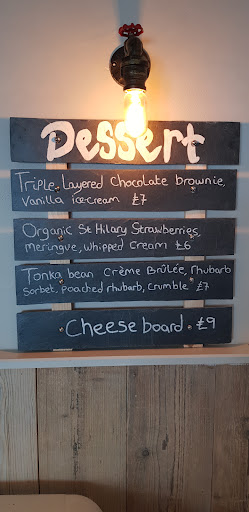 Dessert
Triple Layered Chocolate brownie,
Vanilla ice-cream £7
Organic St Hilary Strawberries,
meringue, whipped cream £6
Tonka bean Crème Brûlée, rhubarb
sorbet, poached rhubarb, crumble £7
Cheese board £9